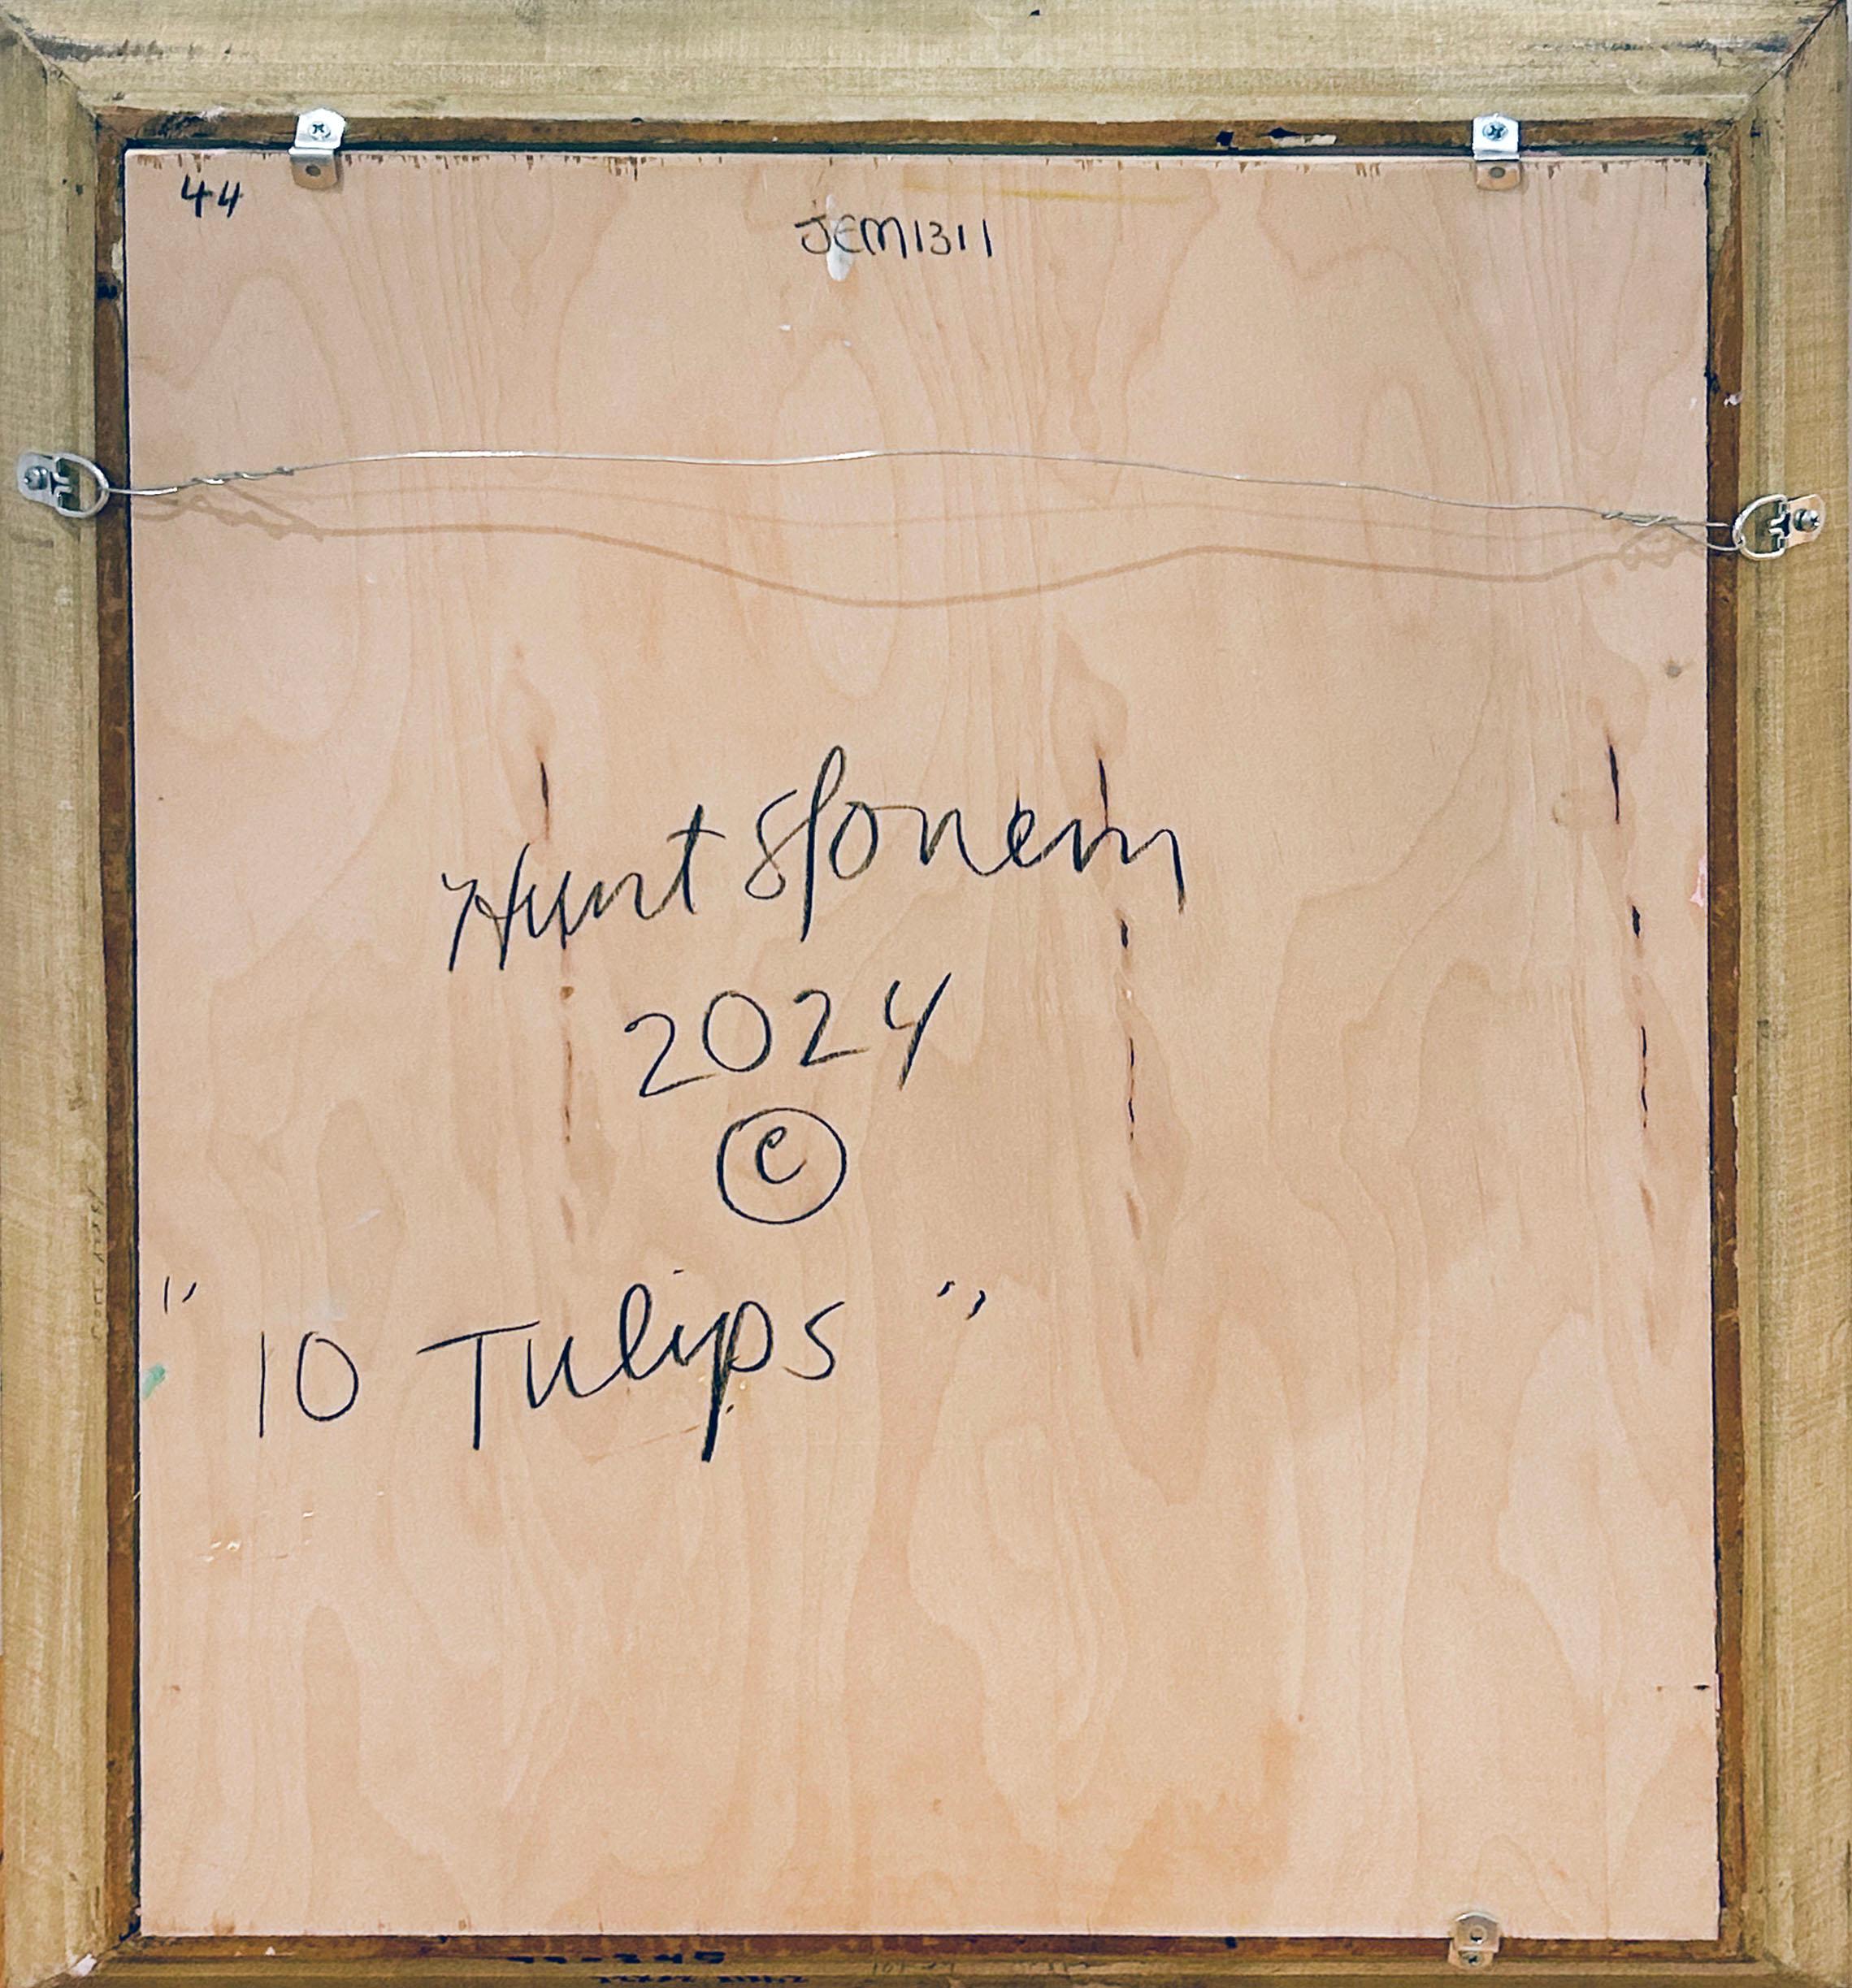 44
JEM1311
Hunt Slonem
2024
©
"10 Tulips"